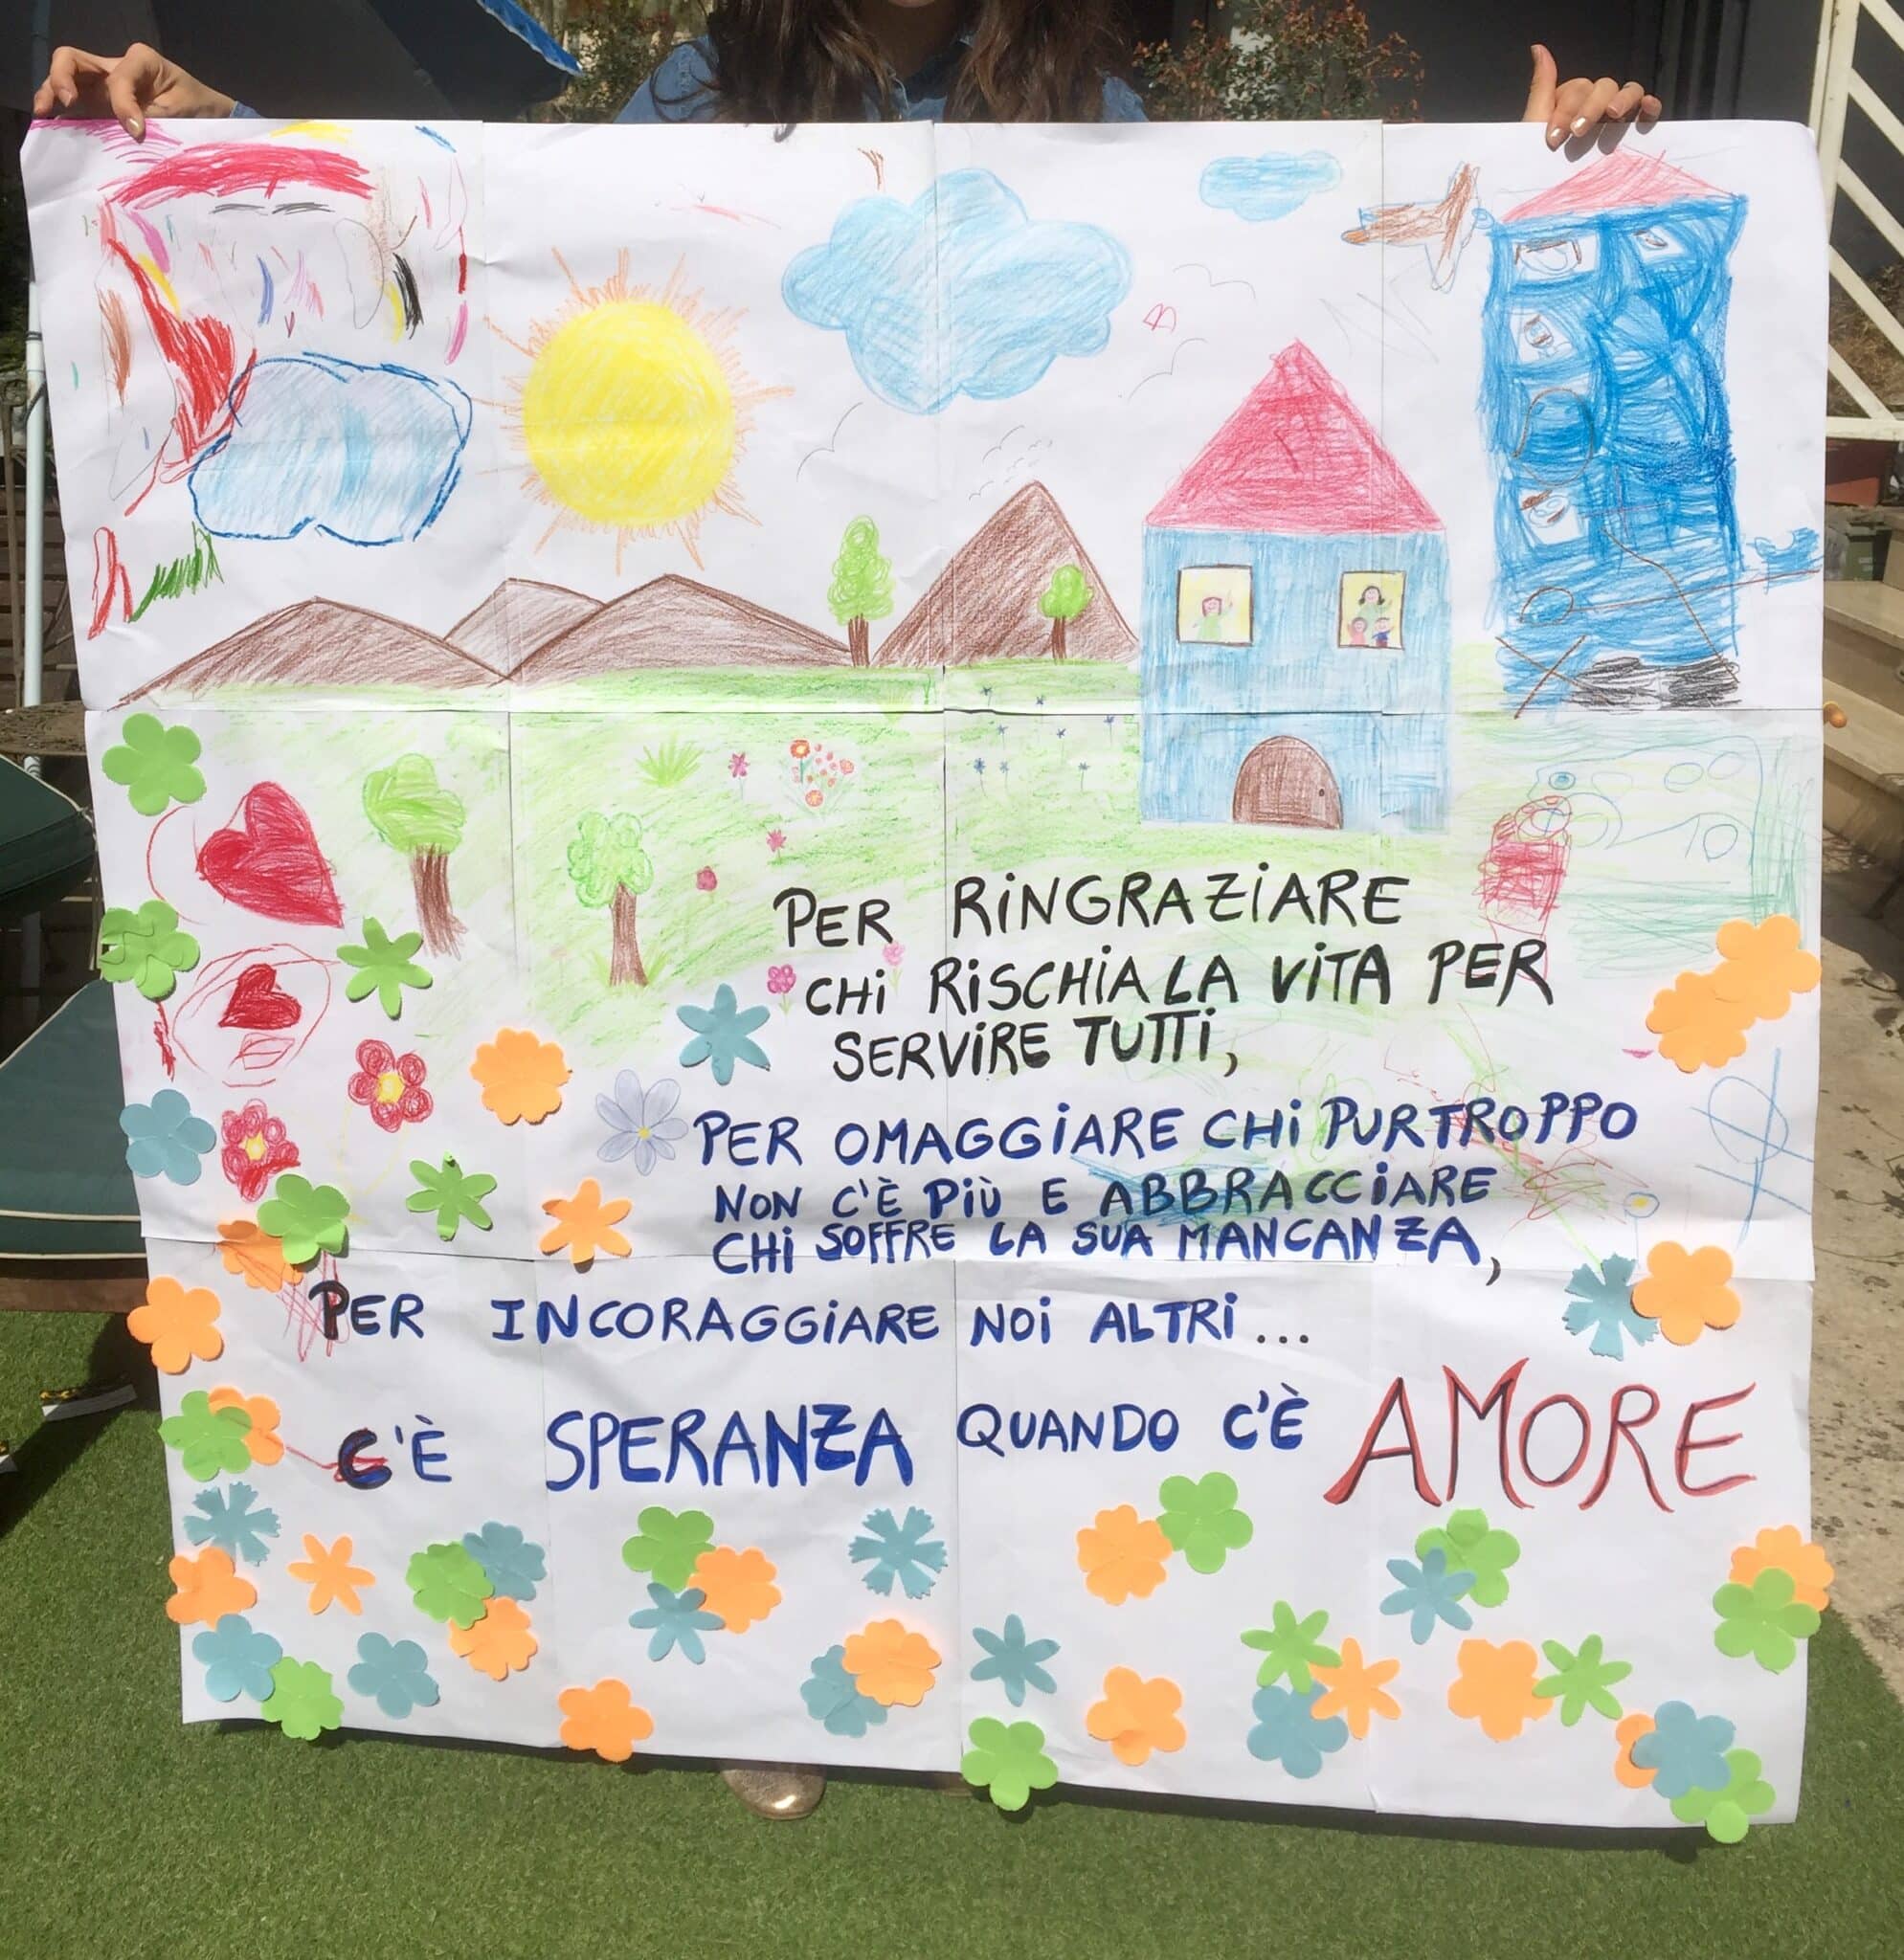 PER RiNGRAZiARE
CHi RiSCHiA LA ViTA PER
SERViRE TUTTi,
PER OMAGGiARE CHi PURTROPPO
NON C'È PiÙ E ABBRACCiARE
CHi SOFFRE LA SUA MANCANZA,
PER INCORAGGiARE NOi ALTRi...
C'È SPERANZA QUANDO C'È AMORE